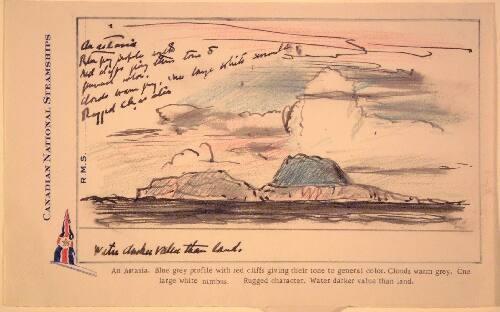 CANADIAN NATIONAL STEAMSHIPS
R.M.S.
An astasia
Blue grey profile with
red cliffs giving their tone to
general color. One large white
Clouds warm grey,
Rugged
Water darker value than land.
An Astasia. Blue grey profile with red cliffs giving their tone to general color. Clouds warm grey. One
large white nimbus. Rugged character. Water darker value than land.